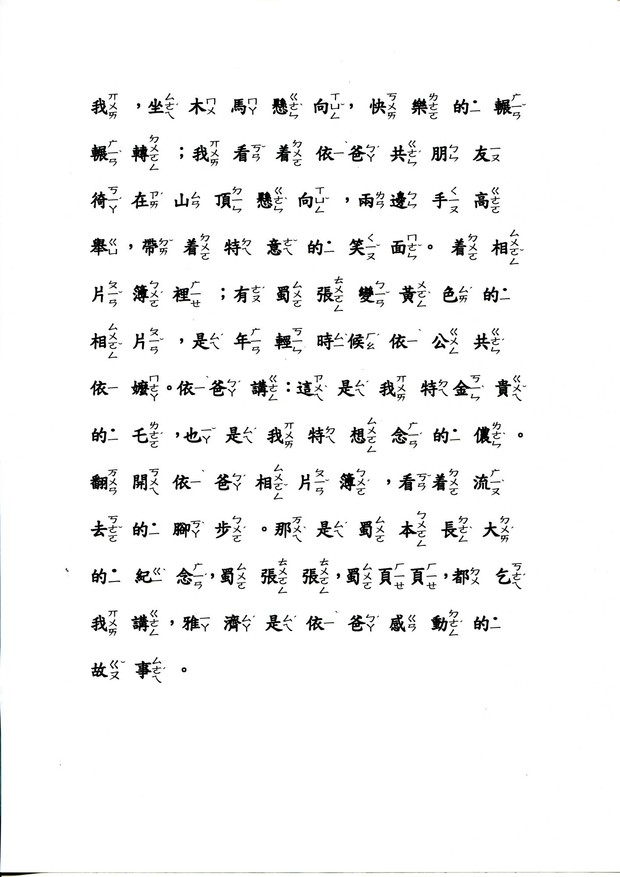 我，坐木馬懸向，快樂的輾
輾轉；我看着依爸共朋友
徛在山頂懸向，兩邊手高
舉，帶着特意的笑面。着相
片簿裡；有蜀張變黃色的
相片，是年輕時候依公共
依嬤。依爸講：這是我特金貴
的乇，也是我特想念的儂。
翻開依爸相片簿，看着流
去的腳步。那是蜀本長大
的紀念，蜀張張，蜀頁頁，都乞
我講，雅濟是依爸感動的
故事。